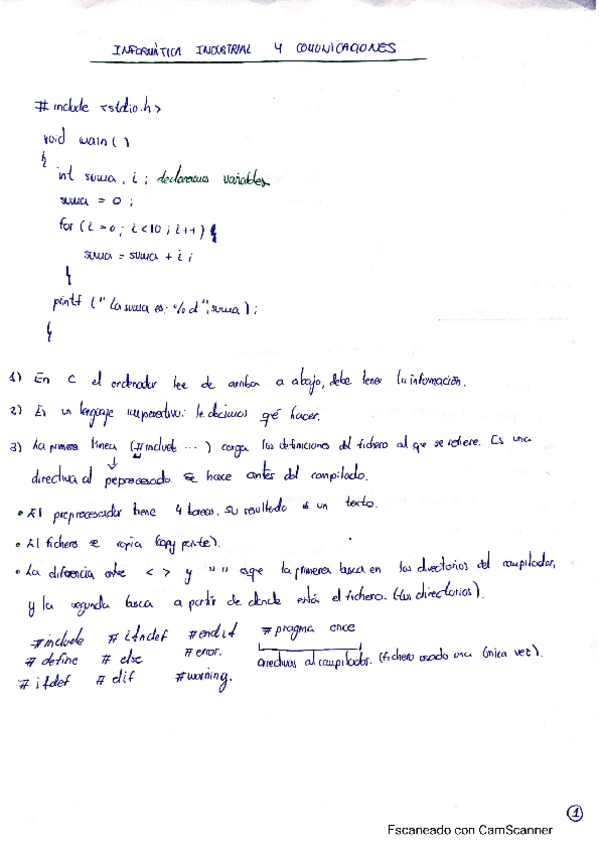 INFORMÁTICA INDUSTRIAL Y COMUNICACIONES
#include <stdio.h>
void main()
{
int suma, i; declaramos variables
suma = 0;
for (i=0; i<10; i++) {
suma = suma + i;
}
printf ("La suma es: %d", suma);
}
1) En C el ordenador lee de arriba a abajo, debe tener la información.
2) Es un lenguaje imperativo: le decimos qué hacer.
3) La primera línea (#include ...) carga las definiciones del fichero al que se refiere. Es una
directiva al peprocesado se hace antes del compilado.
• El preprocesador tiene 4 tareas. su resultado es un texto.
• El fichero se copia (copy paste).
• La diferencia entre < > y " " es que la primera busca en los directorios del compilador,
y la segunda busca a partir de donde está el fichero. (directorios).
#include #ifndef #endif #pragma once
#define #else #error. directivas al compilador. (fichero usado una única vez).
#ifdef #elif #warning.
1
Escaneado con CamScanner